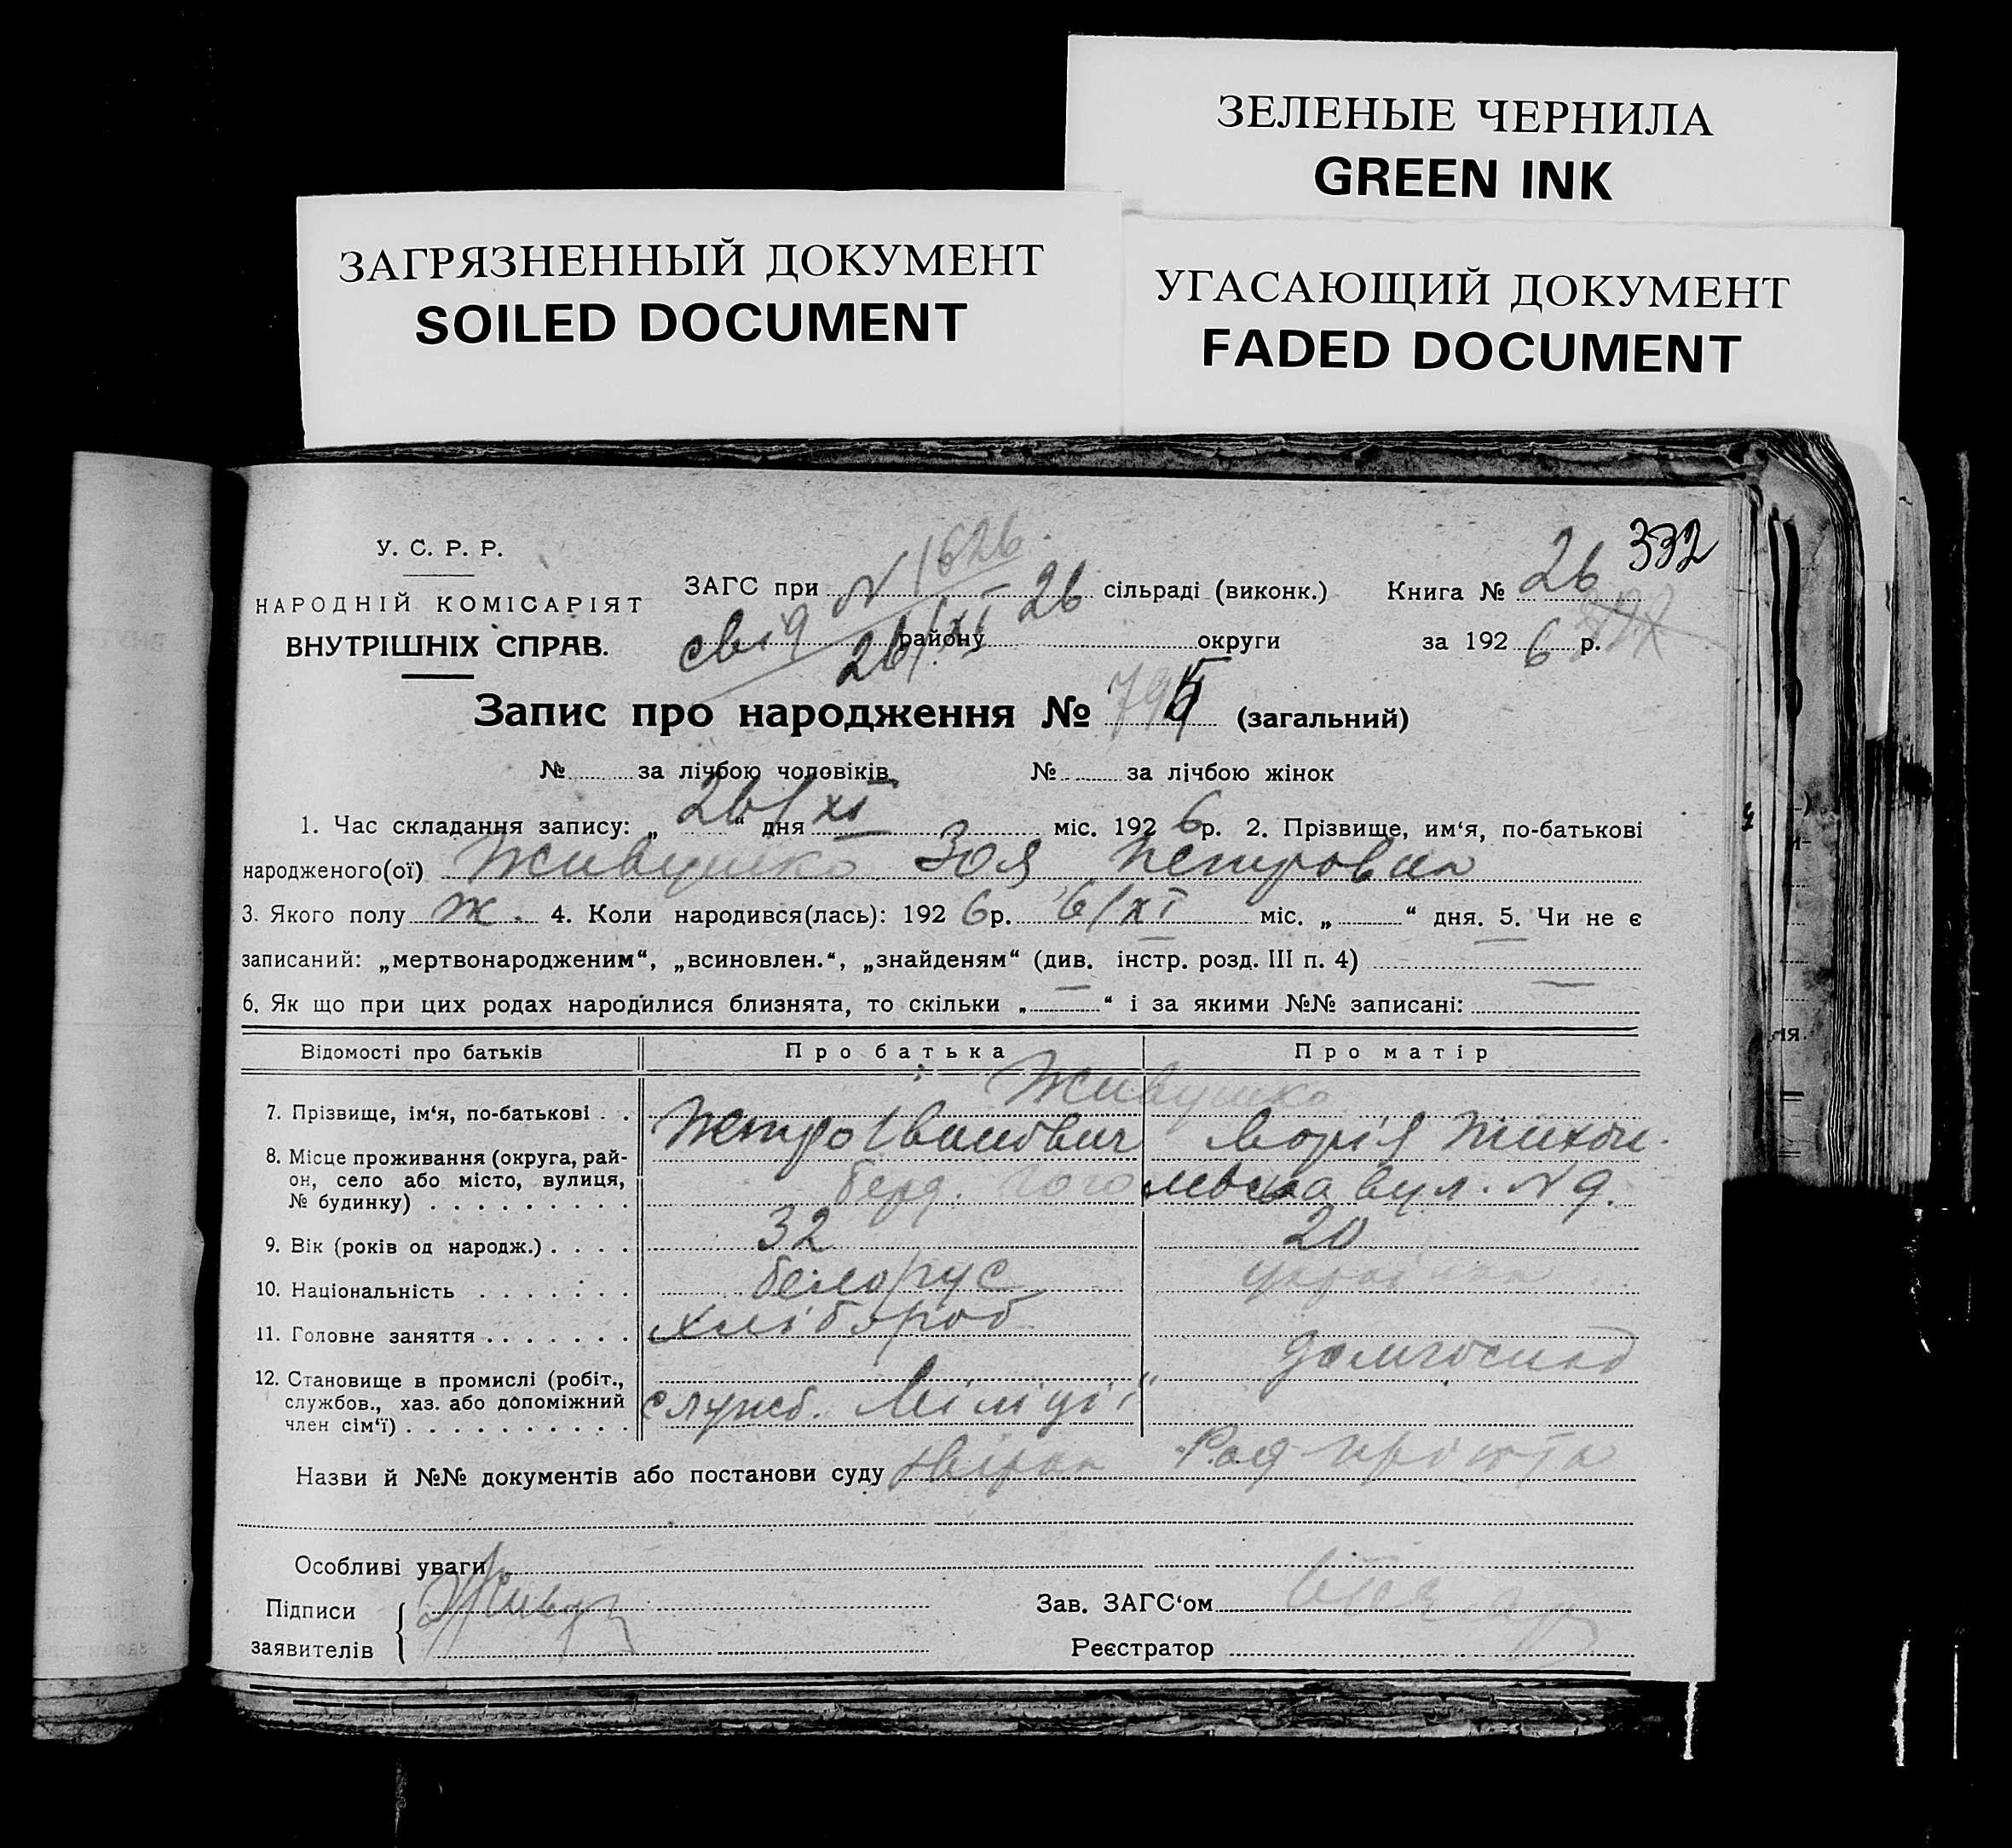 ЗЕЛЕНЫЕ ЧЕРНИЛА
GREEN INK
ЗАГРЯЗНЕННЫЙ ДОКУМЕНТ
SOILED DOCUMENT
УГАСАЮЩИЙ ДОКУМЕНТ
FADED DOCUMENT
У. С. Р. Р.
НАРОДНІЙ КОМІСАРІЯТ
ВНУТРІШНІХ СПРАВ.
332
ЗАГС при N 1626 сільраді (виконк.) Книга № 26
свід 26/XI 26 району округи за 192 6 р.
Запис про народження № 795 (загальний)
№ за лічбою чоловіків № за лічбою жінок
1. Час складання запису: „ 26/XI “ дня міс. 192 6 р. 2. Прізвище, им‘я, по-батькові
народженого(ої) Живушко Зоя Петровна
3. Якого полу ж. 4. Коли народився(лась): 192 6 р. 6/XI міс. „ “ дня. 5. Чи не є
записаний: „мертвонародженим“, „всиновлен.“, „знайденям“ (див. інстр. розд. III п. 4)
6. Як що при цих родах народилися близнята, то скільки „ “ і за якими №№ записані:
Відомості про батьків Про батька Про матір
Живушко
7. Прізвище, ім‘я, по-батькові Петро Іванович Марія Тихон.
8. Місце проживання (округа, рай-
он, село або місто, вулиця, берд. Гоголевська вул. N 9.
№ будинку)
9. Вік (років од народж.) 32 20
10. Національність белорус українка
11. Головне заняття хлібороб домгоспод
12. Становище в промислі (робіт.,
службов., хаз. або допоміжний служб. Міліції
член сім‘ї)
Назви й №№ документів або постанови суду
Особливі уваги
Підписи
заявителів
Зав. ЗАГС‘ом
Реєстратор